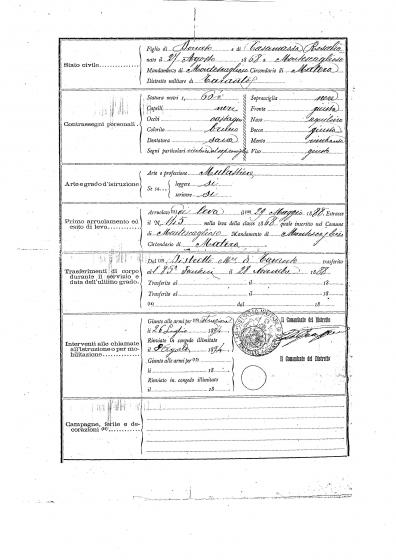 Stato civile
Figlio di Donato e di Casamassa
nato il 27 Agosto 1868 a Montescaglioso
Mandamento di Montescaglioso Circondario di Matera
Distretto militare di Taranto
Contrassegni personali
Statura metri 1, 60 Sopracciglia neri
Capelli neri Fronte giusta
Occhi castagni Naso aquilino
Colorito bruno Bocca giusta
Dentatura sana Mento
Segni particolari Viso giusto
Arte e grado d'istruzione
Arte o professione Mulattiere
Se sa leggere si
scrivere si
Primo arruolamento ed esito di leva
Arruolato di leva 29 Maggio 1888. Estrasse
il N. 145 nella leva della classe 1868 quale inscritto nel Comune
di Montescaglioso Mandamento di Montescaglioso
Circondario di Matera
Trasferimenti di corpo durante il servizio e data dell'ultimo grado
Dal Distretto di Taranto trasferito
al Fanteria il 28 Novembre 18
Trasferito al il 18
Trasferito al il 18
dal il 18
Interventi alle chiamate all'istruzione o per mobilitazione
Giunto alle armi per istruzione
li 26 Luglio 1894
Rinviato in congedo illimitato
li Agosto 1894
Giunto alle armi per
li 18
Rinviato in congedo illimitato
li 18
Il Comandante del Distretto
Il Comandante del Distretto
Campagne, ferite e decorazioni